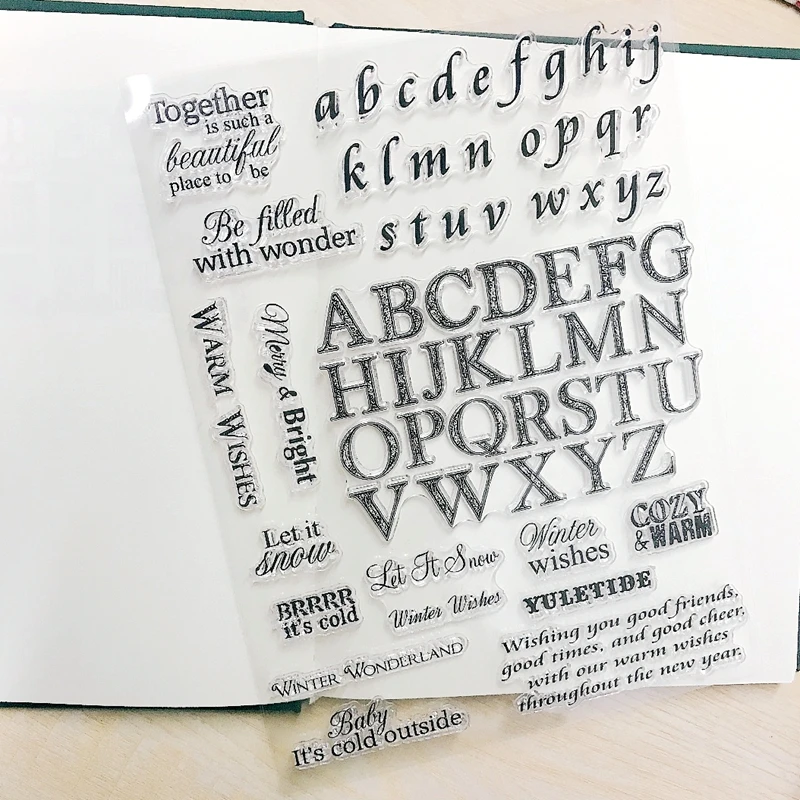 Together
is such a
beautiful
place to be
Be filled
with wonder
a b c d e f g h i j
k l m n o p q r
s t u v w x y z
ABCDEFG
HIJKLMN
OPQRSTU
VWXYZ
WARM WISHES
Merry & Bright
Let it
snow
Let It Snow
Winter
wishes
COZY
& WARM
BRRRR
it's cold
Winter Wishes
YULETIDE
WINTER WONDERLAND
Wishing you good friends,
good times, and good cheer,
with our warm wishes
throughout the new year.
Baby
It's cold outside